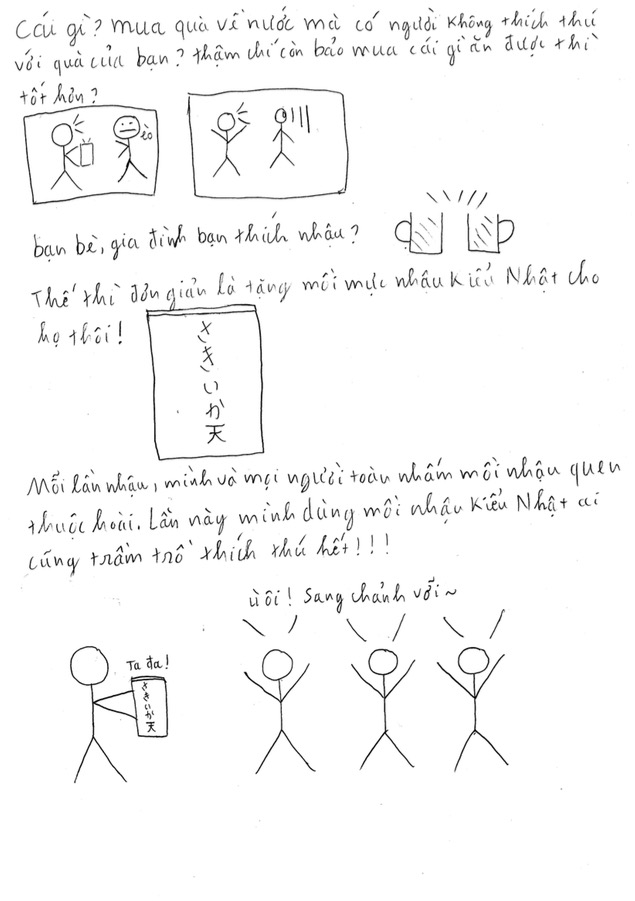 Cái gì? mua quà về nước mà có người không thích thú
với quà của bạn? thậm chí còn bảo mua cái gì ăn được thì
tốt hơn?
èo
bạn bè, gia đình bạn thích nhậu?
Thế thì đơn giản là tặng mồi mực nhậu kiểu Nhật cho
họ thôi!
さきいか天
Mỗi lần nhậu, mình và mọi người toàn nhấm mồi nhậu quen
thuộc hoài. Lần này mình dùng mồi nhậu kiểu Nhật ai
cũng trầm trồ thích thú hết!!!
ù ôi! Sang chảnh vỡi~
Ta đa!
さきいか天